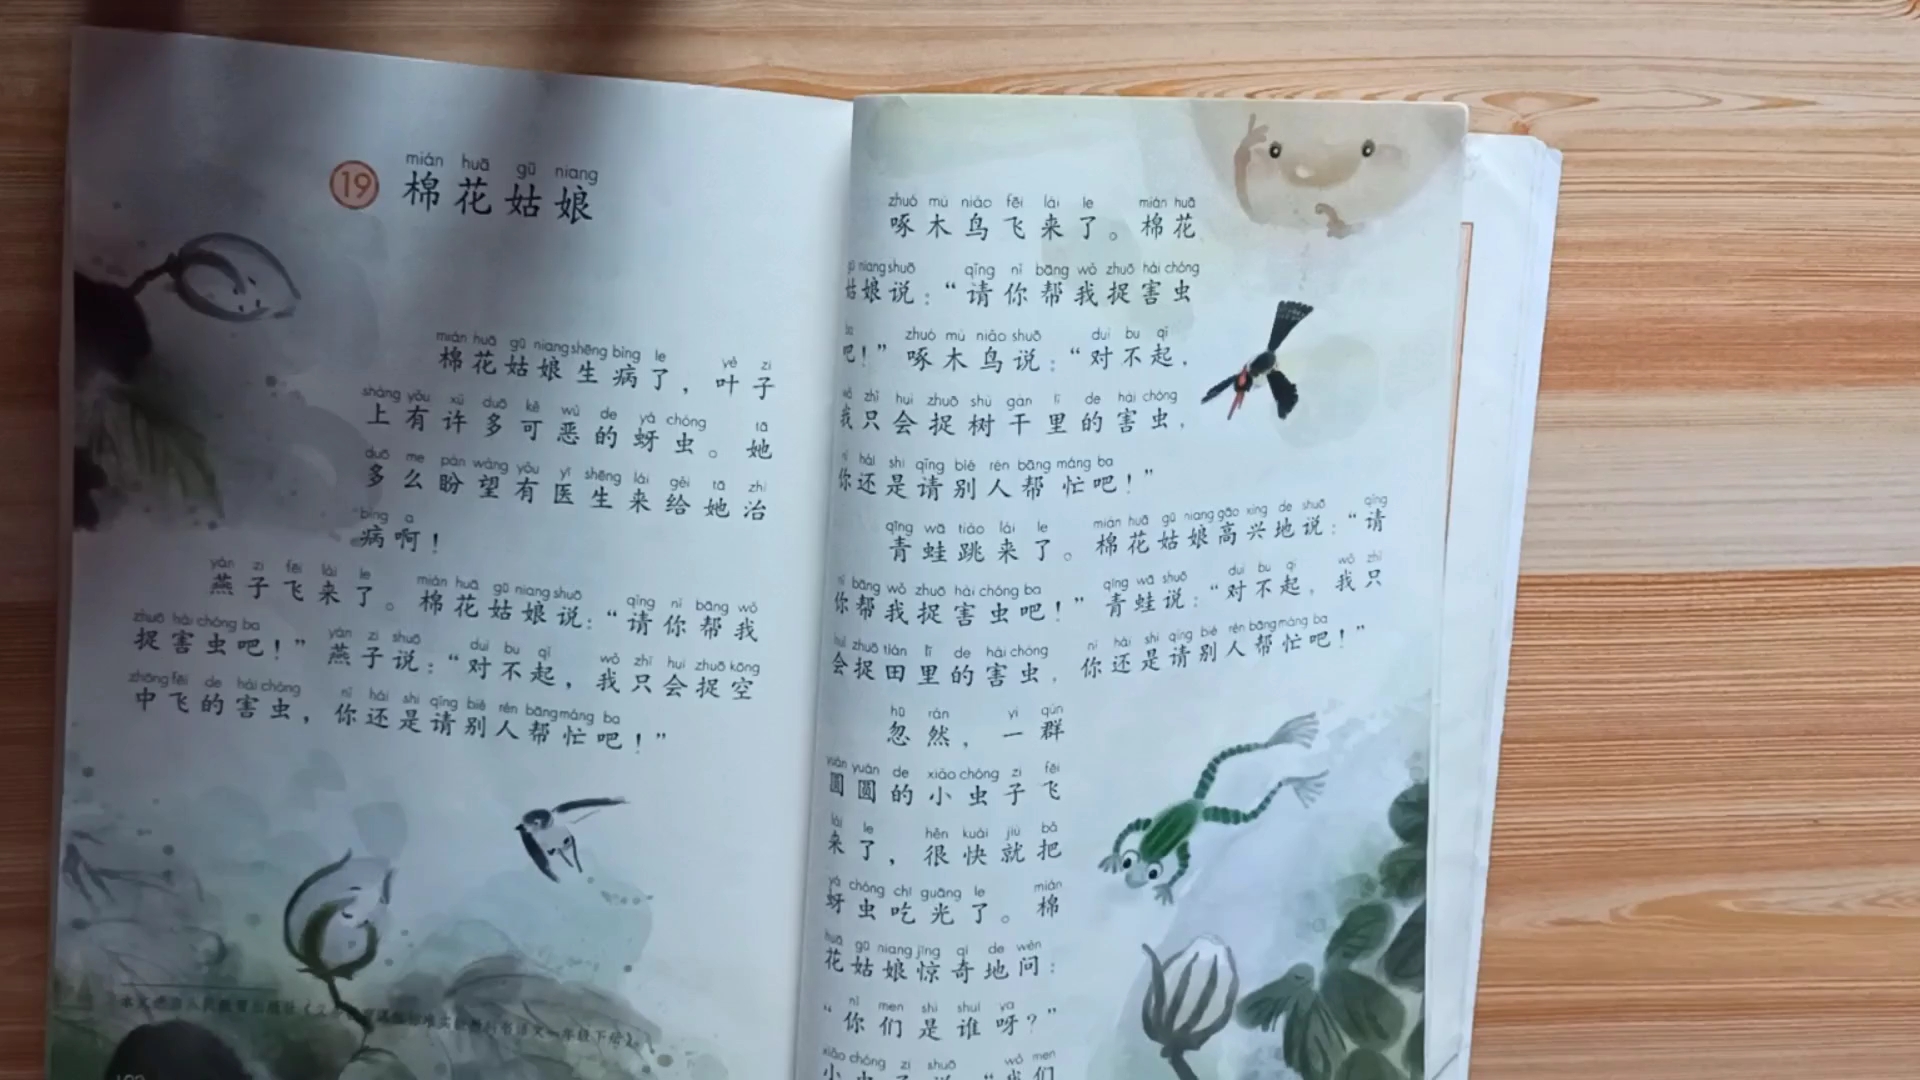 mián huā gū niang
19 棉花姑娘
mián huā gū niang shēng bìng le yè zi
棉花姑娘生病了，叶子
shàng yǒu xǔ duō kě wù de yá chóng tā
上有许多可恶的蚜虫。她
duō me pàn wàng yǒu yī shēng lái gěi tā zhì
多么盼望有医生来给她治
bìng a
病啊！
yàn zi fēi lái le mián huā gū niang shuō qǐng nǐ bāng wǒ
燕子飞来了。棉花姑娘说：“请你帮我
zhuō hài chóng ba yàn zi shuō duì bu qǐ wǒ zhǐ huì zhuō kōng
捉害虫吧！”燕子说：“对不起，我只会捉空
zhōng fēi de hài chóng nǐ hái shi qǐng bié rén bāng máng ba
中飞的害虫，你还是请别人帮忙吧！”
zhuó mù niǎo fēi lái le mián huā
啄木鸟飞来了。棉花
gū niang shuō qǐng nǐ bāng wǒ zhuō hài chóng
姑娘说：“请你帮我捉害虫
ba zhuó mù niǎo shuō duì bu qǐ
吧！”啄木鸟说：“对不起，
wǒ zhǐ huì zhuō shù gàn lǐ de hài chóng
我只会捉树干里的害虫，
nǐ hái shi qǐng bié rén bāng máng ba
你还是请别人帮忙吧！”
qīng wā tiào lái le mián huā gū niang gāo xìng de shuō qǐng
青蛙跳来了。棉花姑娘高兴地说：“请
nǐ bāng wǒ zhuō hài chóng ba qīng wā shuō duì bu qǐ wǒ zhǐ
你帮我捉害虫吧！”青蛙说：“对不起，我只
huì zhuō tián lǐ de hài chóng nǐ hái shi qǐng bié rén bāng máng ba
会捉田里的害虫，你还是请别人帮忙吧！”
hū rán yì qún
忽然，一群
yuán yuán de xiǎo chóng zi fēi
圆圆的小虫子飞
lái le hěn kuài jiù bǎ
来了，很快就把
yá chóng chī guāng le mián
蚜虫吃光了。棉
huā gū niang jīng qí de wèn
花姑娘惊奇地问：
nǐ men shì shuí ya
“你们是谁呀？”
xiǎo chóng zi shuō wǒ men
小虫子说：“我们